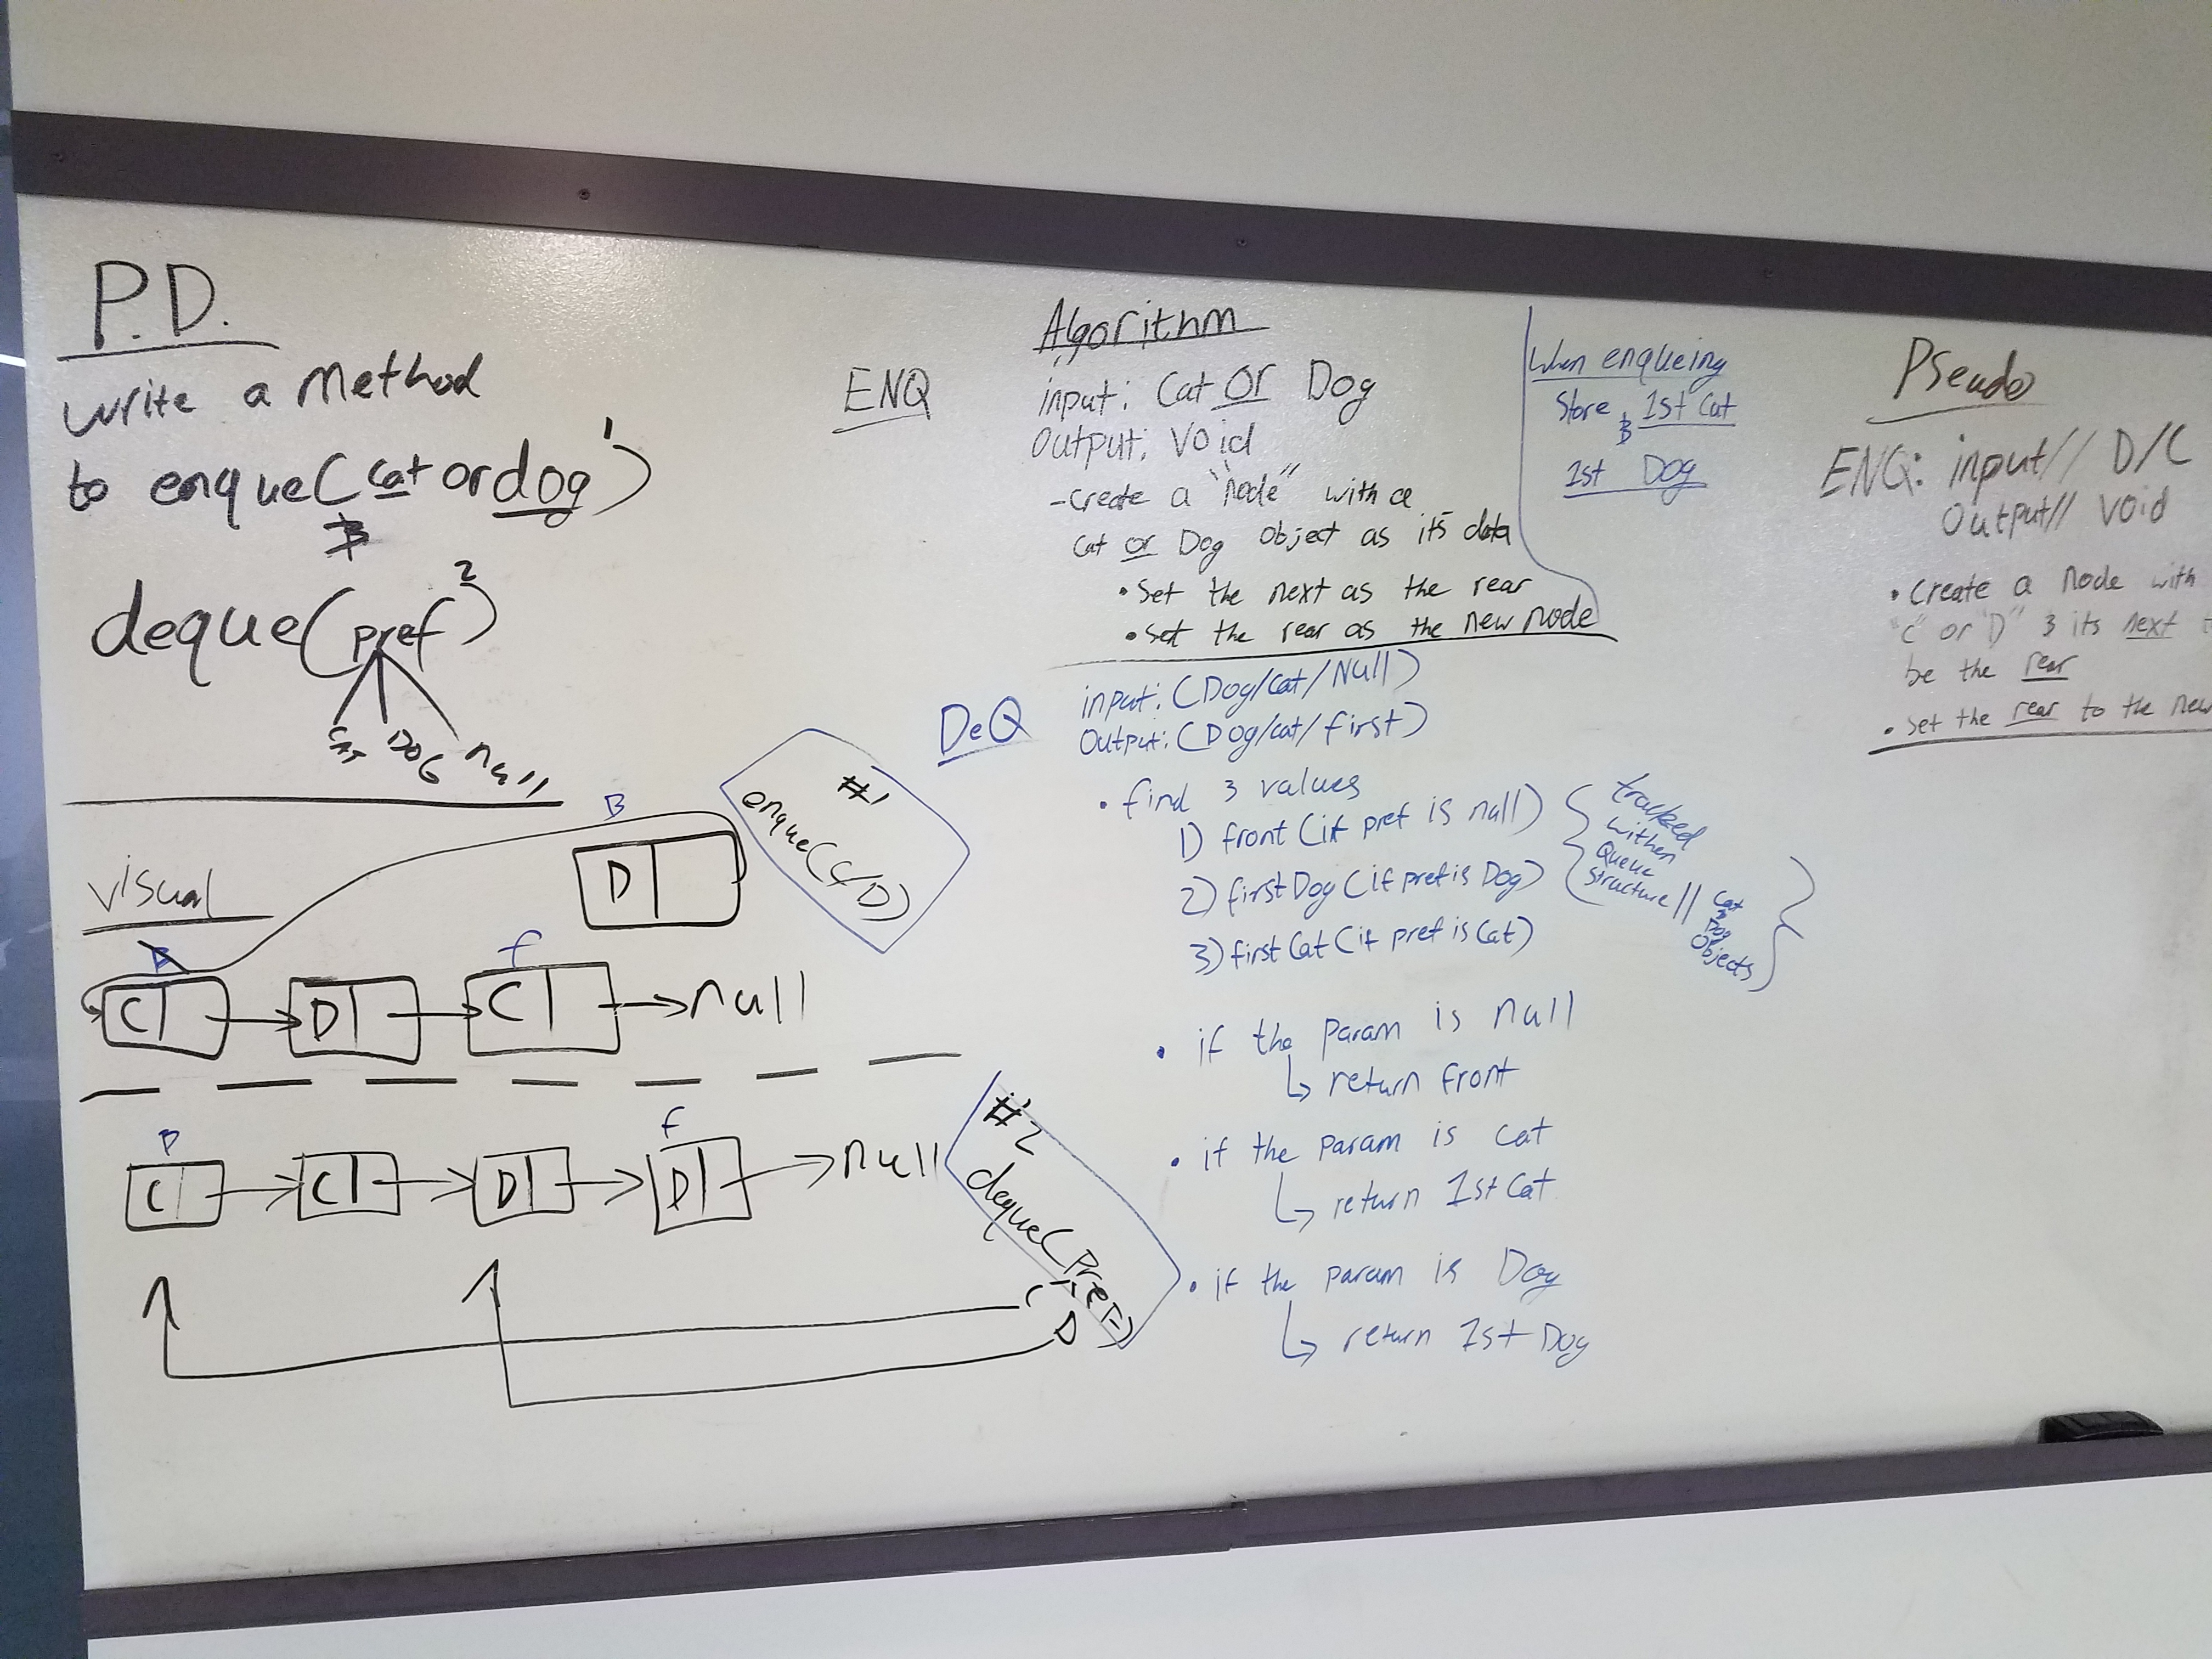 P.D.
write a method
to enque(cat or dog)¹
deque(pref)²
CAT DOG null
visual
B
D
#1
enque(C/D)
B f
C D C null
B f
C C D D null
#2
deque(Pref)
C
D
Algorithm
ENQ
input: Cat or Dog
Output: Void
- Create a "node" with a
Cat or Dog Object as its data
• Set the next as the rear
• Set the rear as the new node
When enqueing
Store 1st Cat
1st Dog
DeQ
input: (Dog/Cat/Null)
Output: (Dog/cat/first)
• find 3 values
1) front (if pref is null)
2) first Dog (if pref is Dog)
3) first Cat (if pref is Cat)
tracked
withen
Queue
Structure //
Cat
Dog
Objects
• if the param is null
return front
• if the param is cat
return 1st Cat
• if the param is Dog
return 1st Dog
Pseudo
ENQ: input// D/C
Output// Void
• Create a Node with
"C" or "D" 3 its next t
be the rear
• Set the rear to the new